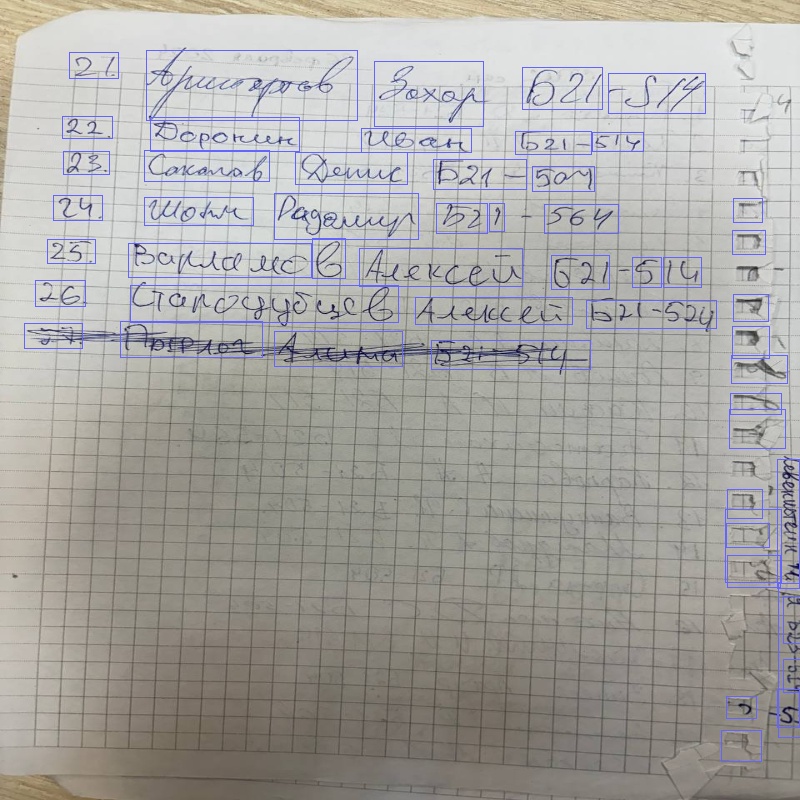 21. Аристархов Захар Б21-514
22. Доронин Иван Б21-514
23. Сакалав Денис Б21-504
24. Шоты Радомир Б21-564
25. Варламов Алексей Б21-514
26. Старосубцев Алексей Б21-524
27. Алина Б21-514